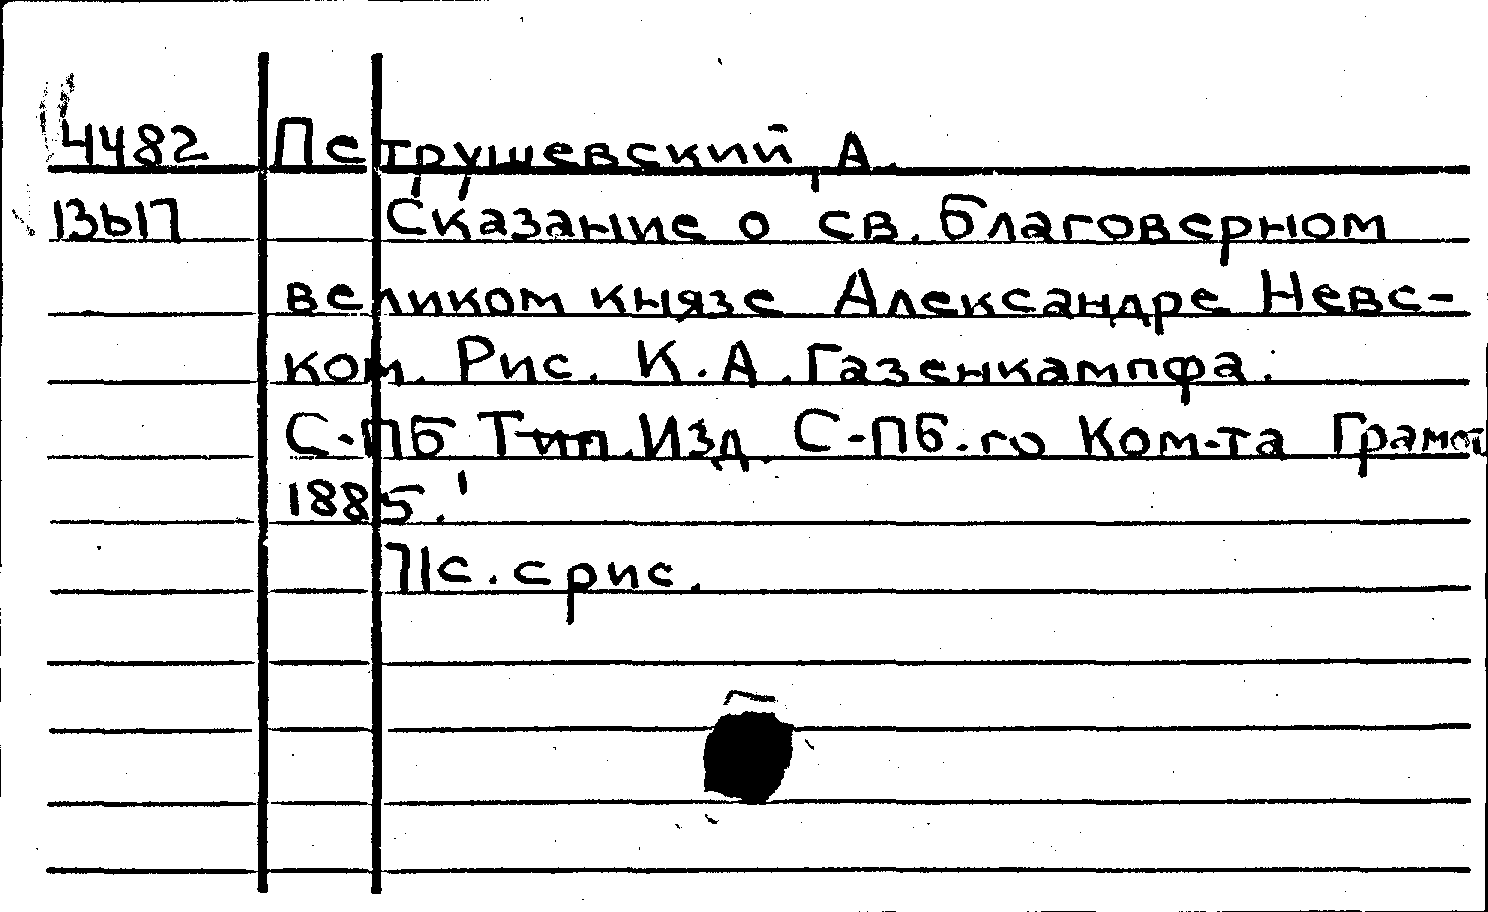 4482 Петрушевский, А.
13617 Сказание о св. благоверном
великом князе Александре Невс-
ком. Рис. К.А. Газенкампфа.
С-ПБ Тип. Изд. С-ПБ.го Ком-та Грамот
1885.
71с. с рис.